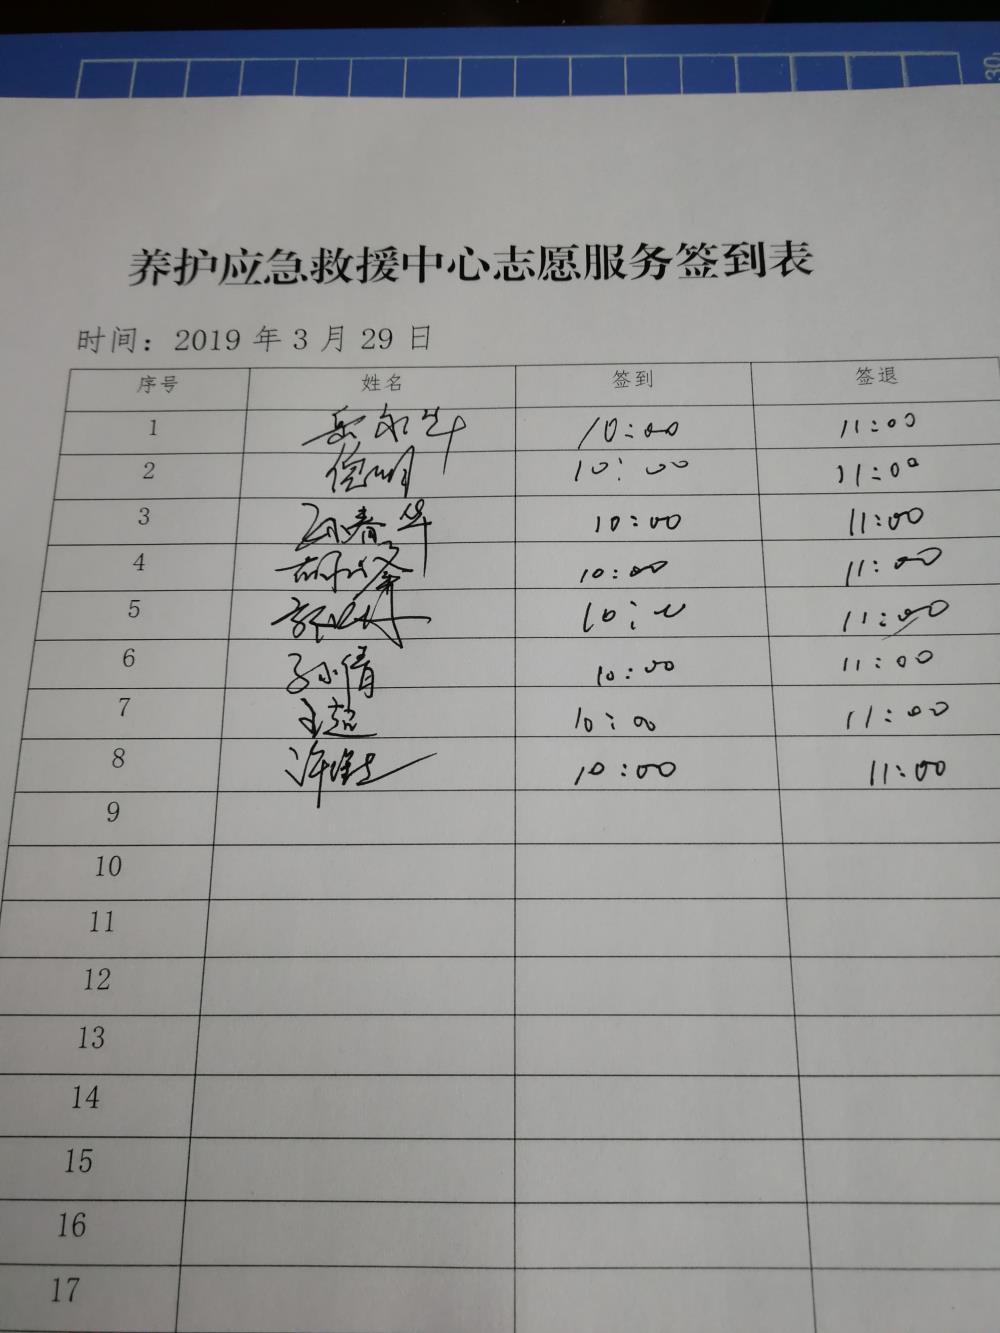 30
养护应急救援中心志愿服务签到表
时间：2019 年 3 月 29 日
序号 姓名 签到 签退
1 10:00 11:00
2 10:00 11:00
3 春华 10:00 11:00
4 10:00 11:00
5 10: 11:00
6 孙倩 10:00 11:00
7 王超 10:00 11:00
8 许 10:00 11:00
9
10
11
12
13
14
15
16
17